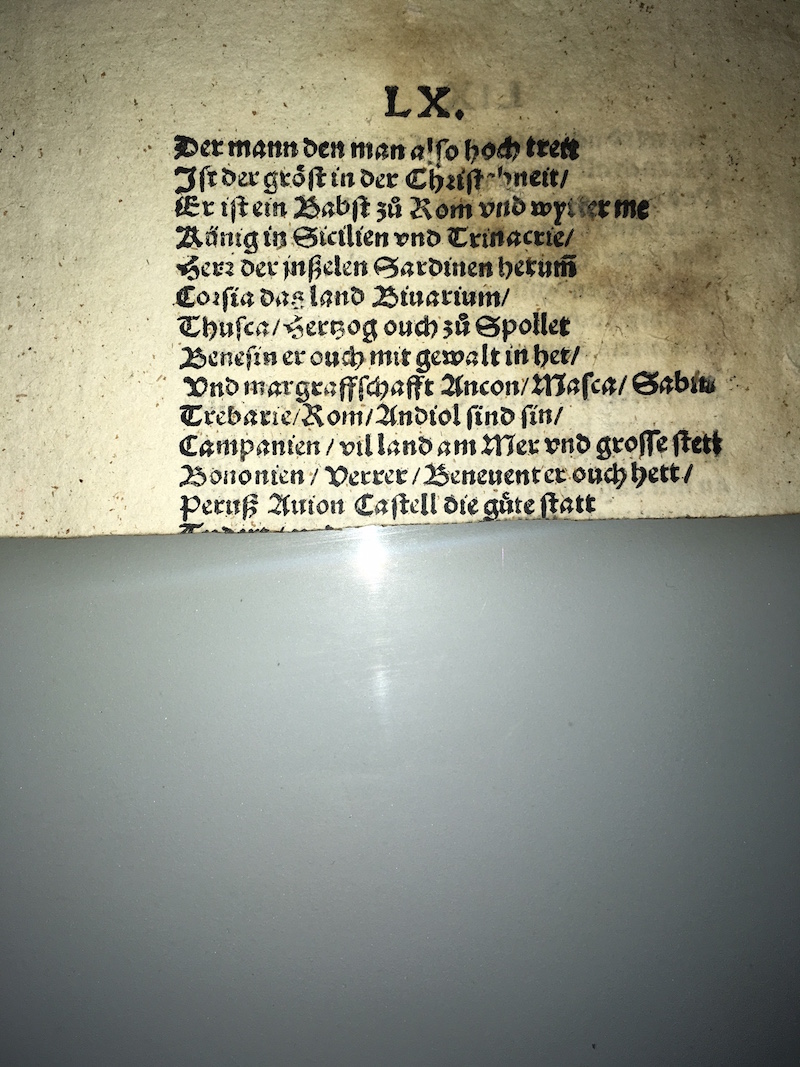 LX.
Der mann den man also hoch trett
Ist der gröst in der
Er ist ein Babst zů Rom vnd wytter me
Künig in Sicilien vnd Trinacrie/
Herr der jnßelen Sardinen herum̃
Corsia das land Biuarium/
Thusca/ Hertzog ouch zů Spollet
Benesin er ouch mit gewalt in het/
Vnd margraffschafft Ancon/ Masca/ Sabin
Trebarie/ Rom/ Andiol sind sin/
Campanien / vil land am Mer vnd grosse stett
Bononien / Verrer / Beneuent er ouch hett/
Peruß Auion Castell die gůte statt